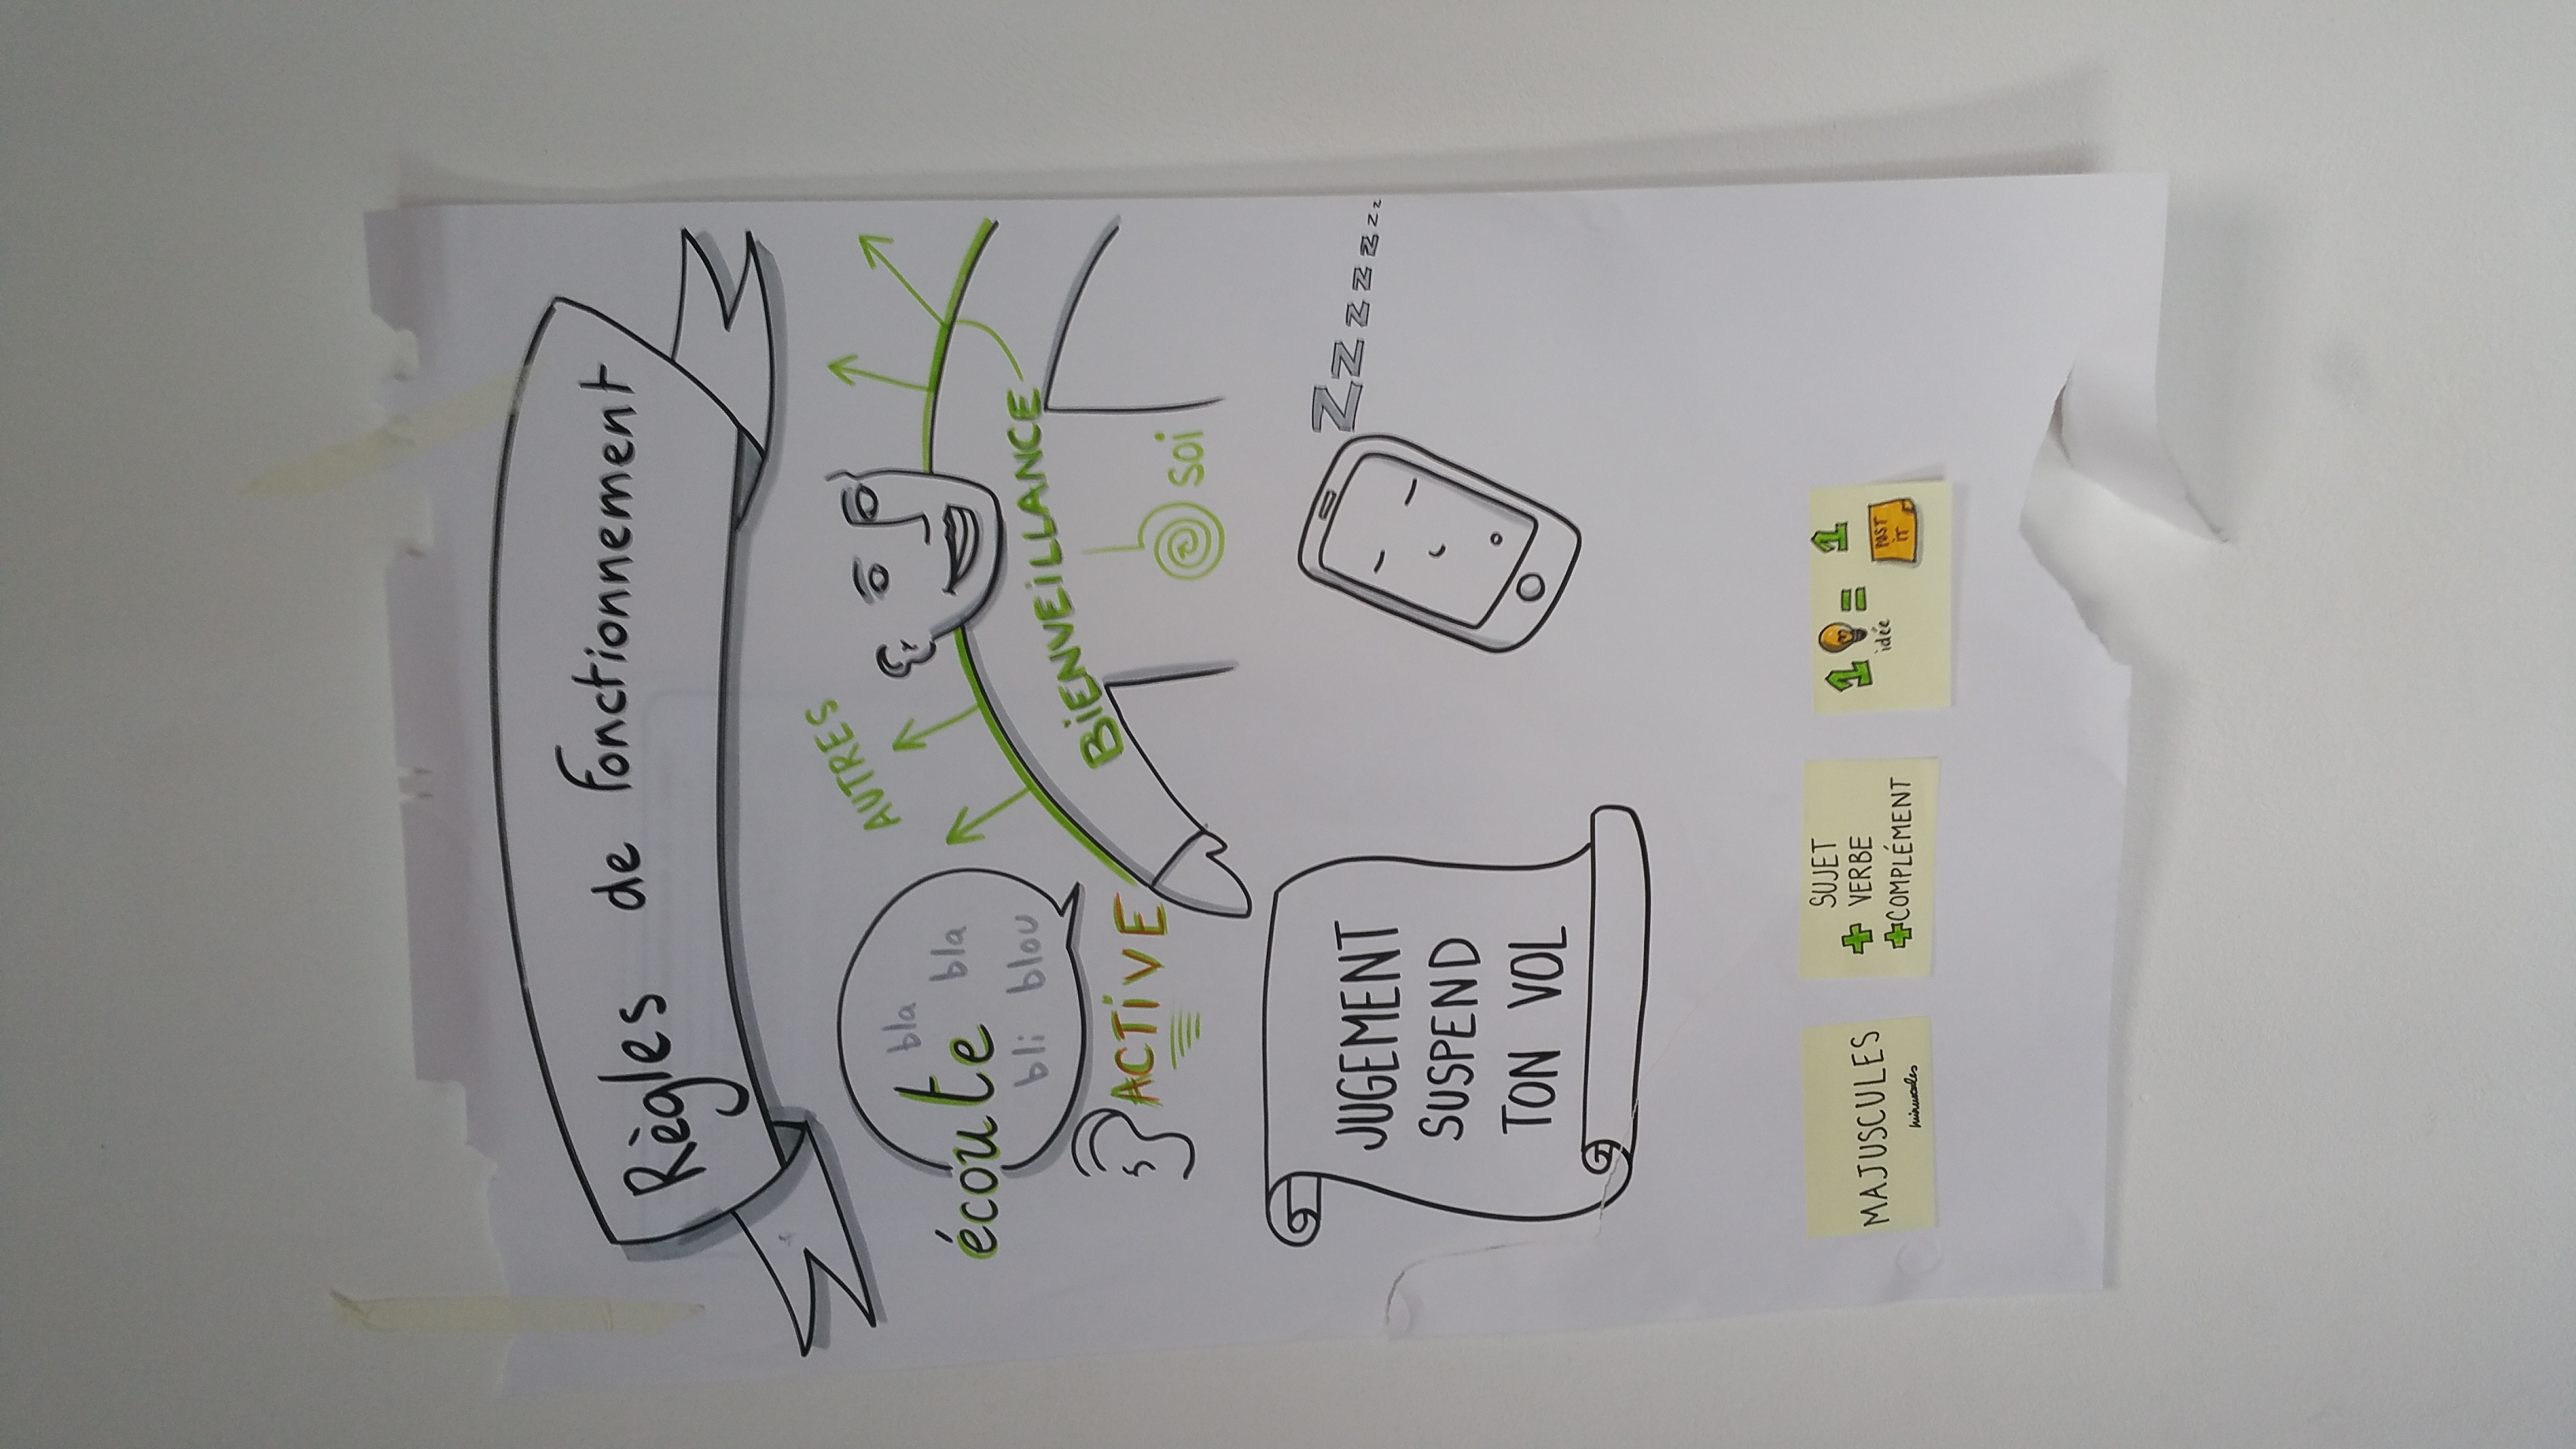 Règles de fonctionnement
écoute
bla
bla
bli blou
ACTIVE
AUTRES
BIENVEILLANCE
SOI
JUGEMENT
SUSPEND
TON VOL
Zzzzzzzz
MAJUSCULES
minuscules
SUJET
+ VERBE
+ COMPLÉMENT
1 = 1
idée
POST
IT